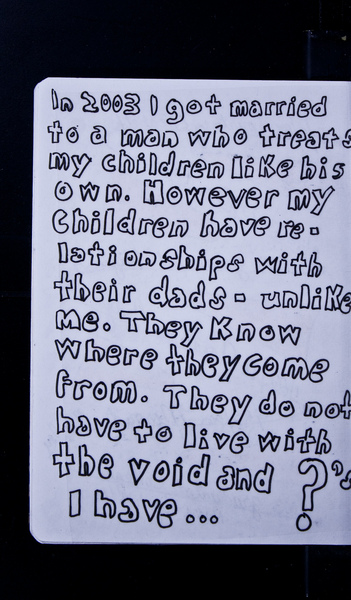 In 2003 I got married
to a man who treats
my children like his
own. However my
Children have re-
lationships with
their dads - unlike
me. They Know
where they come
from. They do not
have to live with
the void and ?'s
I have ...